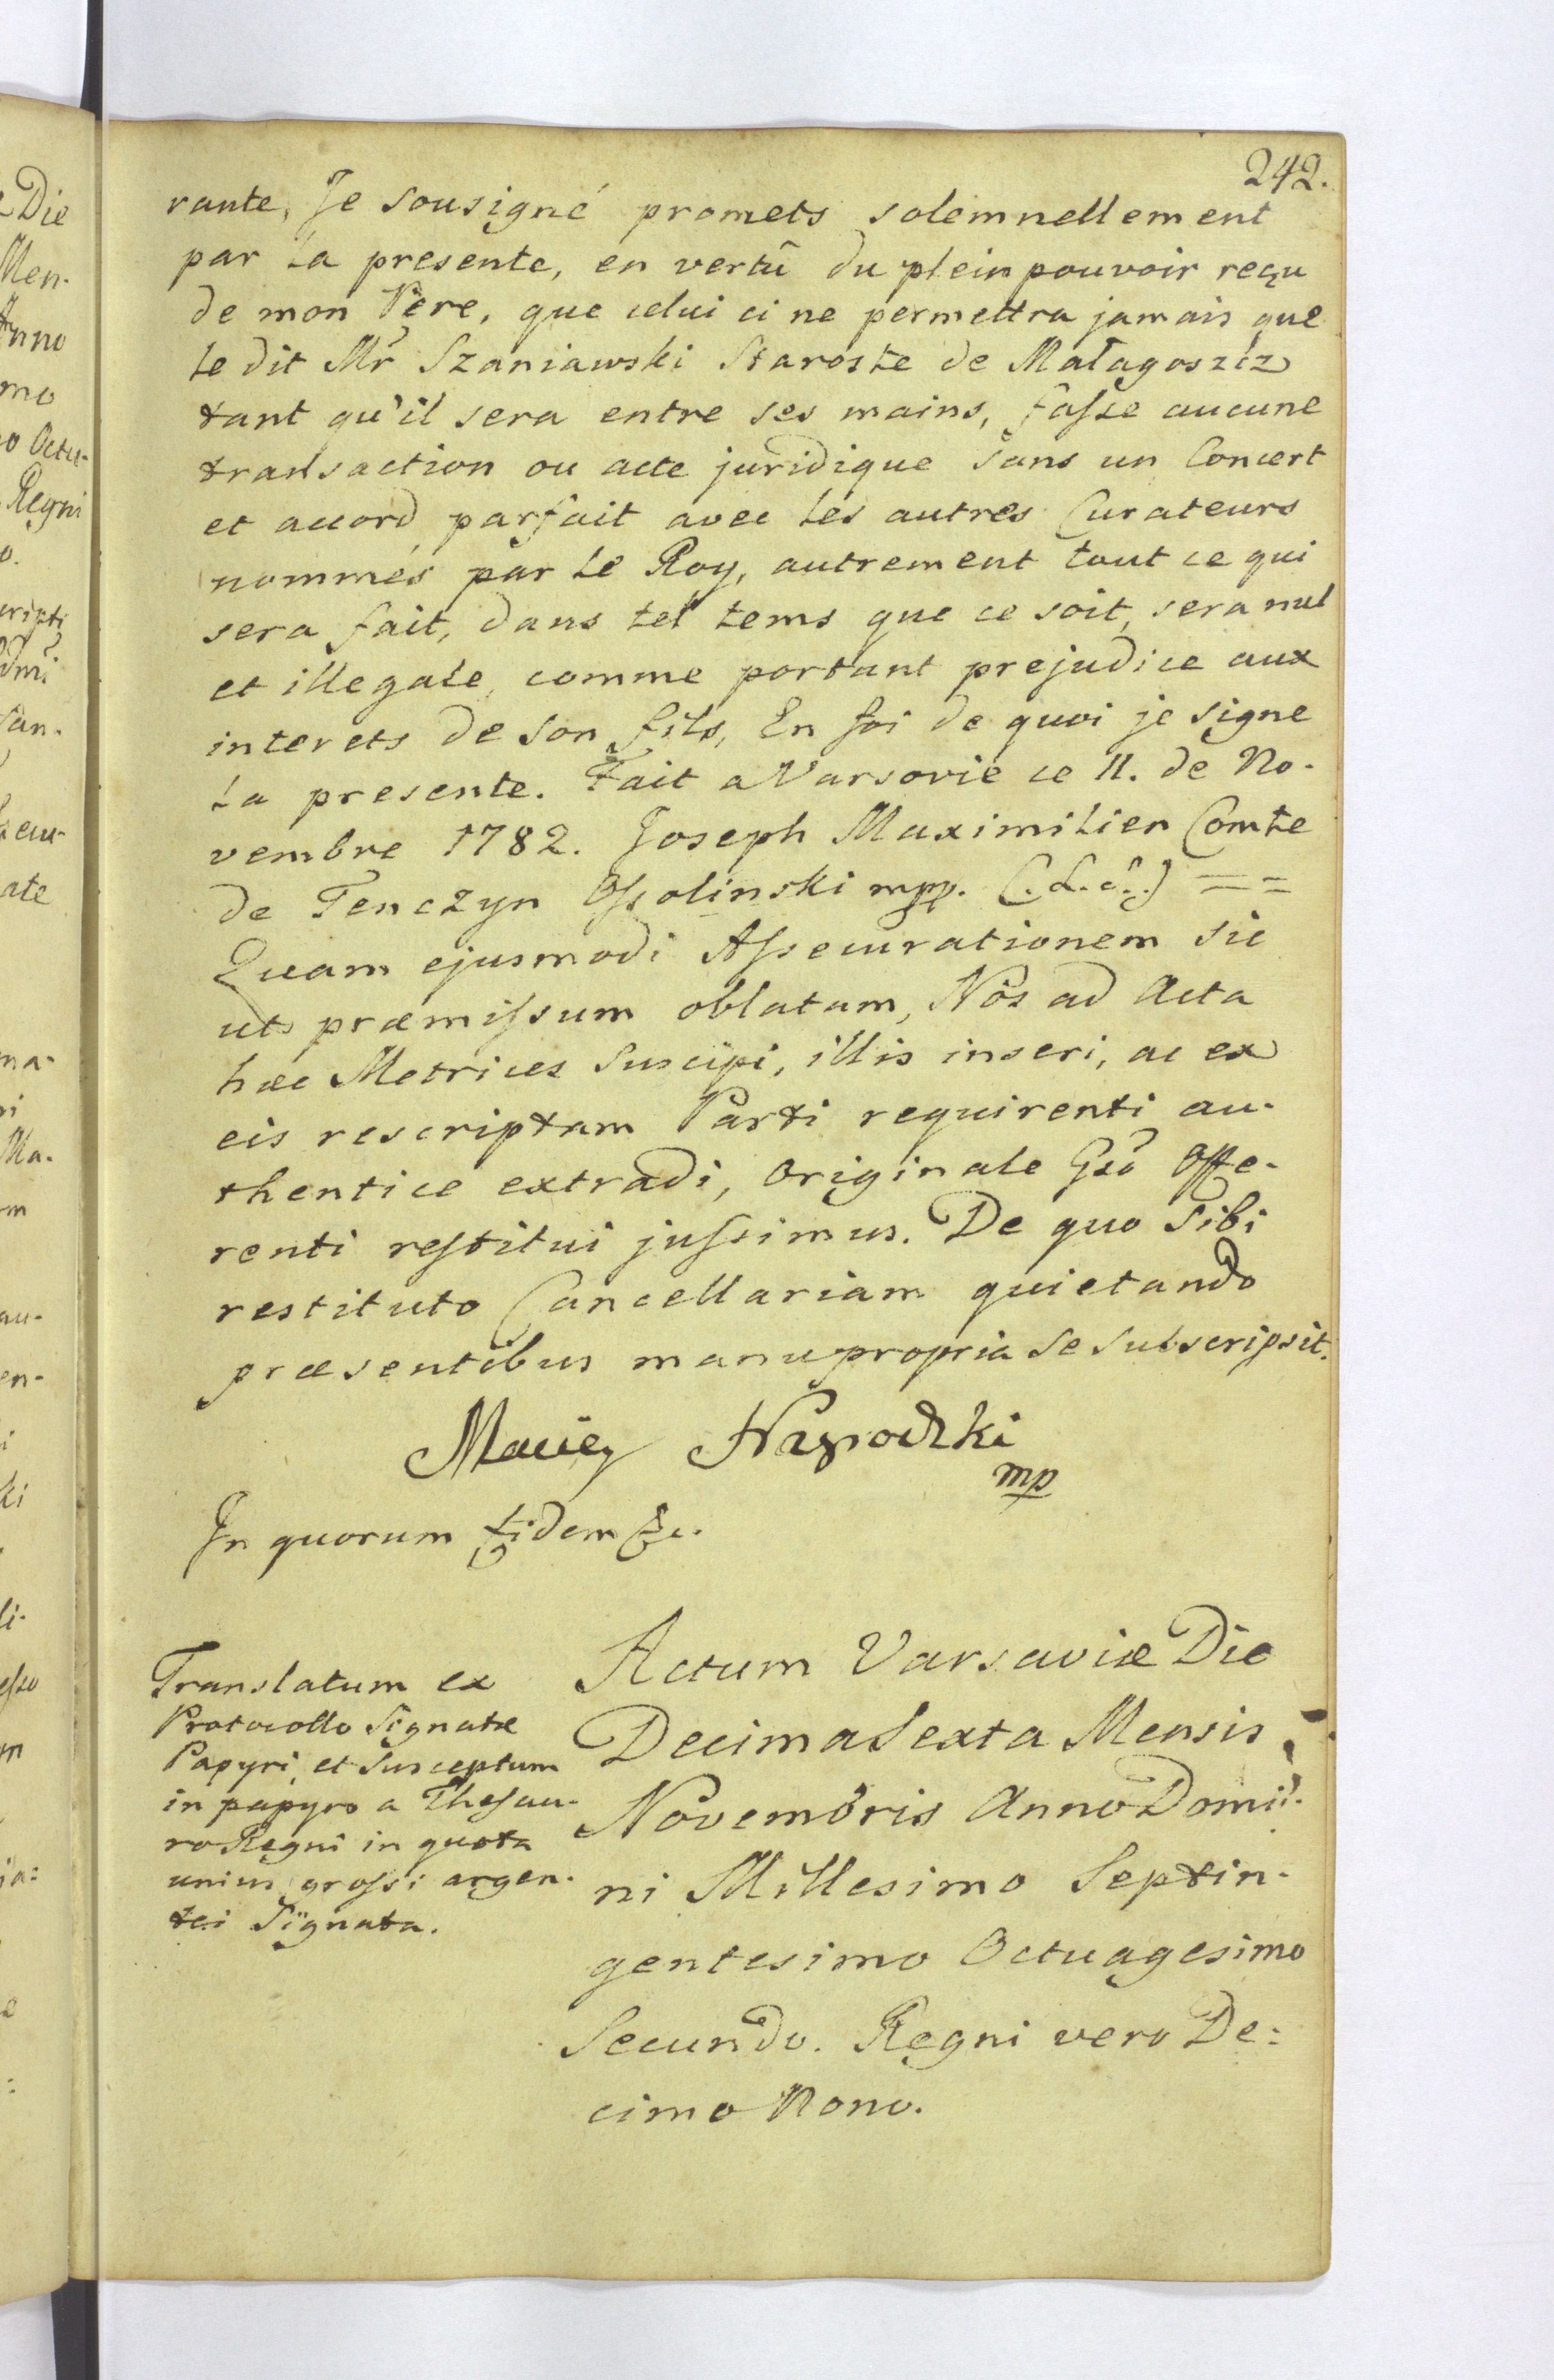 242.
rante, Je sousigné promets solemnellement
par la presente, en vertû du plein pouvoir reçu
de mon Pere, que celui ci ne permettra jamais que
le dit Mr Szaniawski Staroste de Małagoszcz
tant qu'il sera entre ses mains, fasse aucune
transaction ou acte juridique sans un Concert
et accord parfait avec les autres Curateurs
nommés par le Roy, autrement tout ce qui
sera fait, dans tel tems que ce soit, sera nul
et illegale, comme portant prejudice aux
interets de son fils, En foi de quoi je signe
la presente. Fait a Varsovie ce 11. de No-
vembre 1782. Joseph Maximilien Comte
de Tenczyn Ossolinski mpp. (:L.S:) ==
Quam ejusmodi Assecurationem sic
uts præmissum oblatam, Nos ad Acta
hæc Metrices Suscipi, illis inseri, ac ex
eis rescriptam Parti requirenti au-
thentice extradi, Originale Gso Offe-
renti restitui jussimus. De quo Sibi
restituto Cancellariam quietando
præsentibus manupropria se subscripsit.
Maciey
mp
In quorum fidem &c.
Translatum ex
Protocollo Signatæ
Papyri, et Susceptum
in papyro a Thesau-
ro Regni in quota
unius grossi argen-
tei Signata.
Actum Varsaviæ Die
Decima Sexta Mensis
Novembris Anno Domi-
ni Millesimo Septin-
gentesimo Octuagesimo
Secundo. Regni vero De:
cimo Nono.